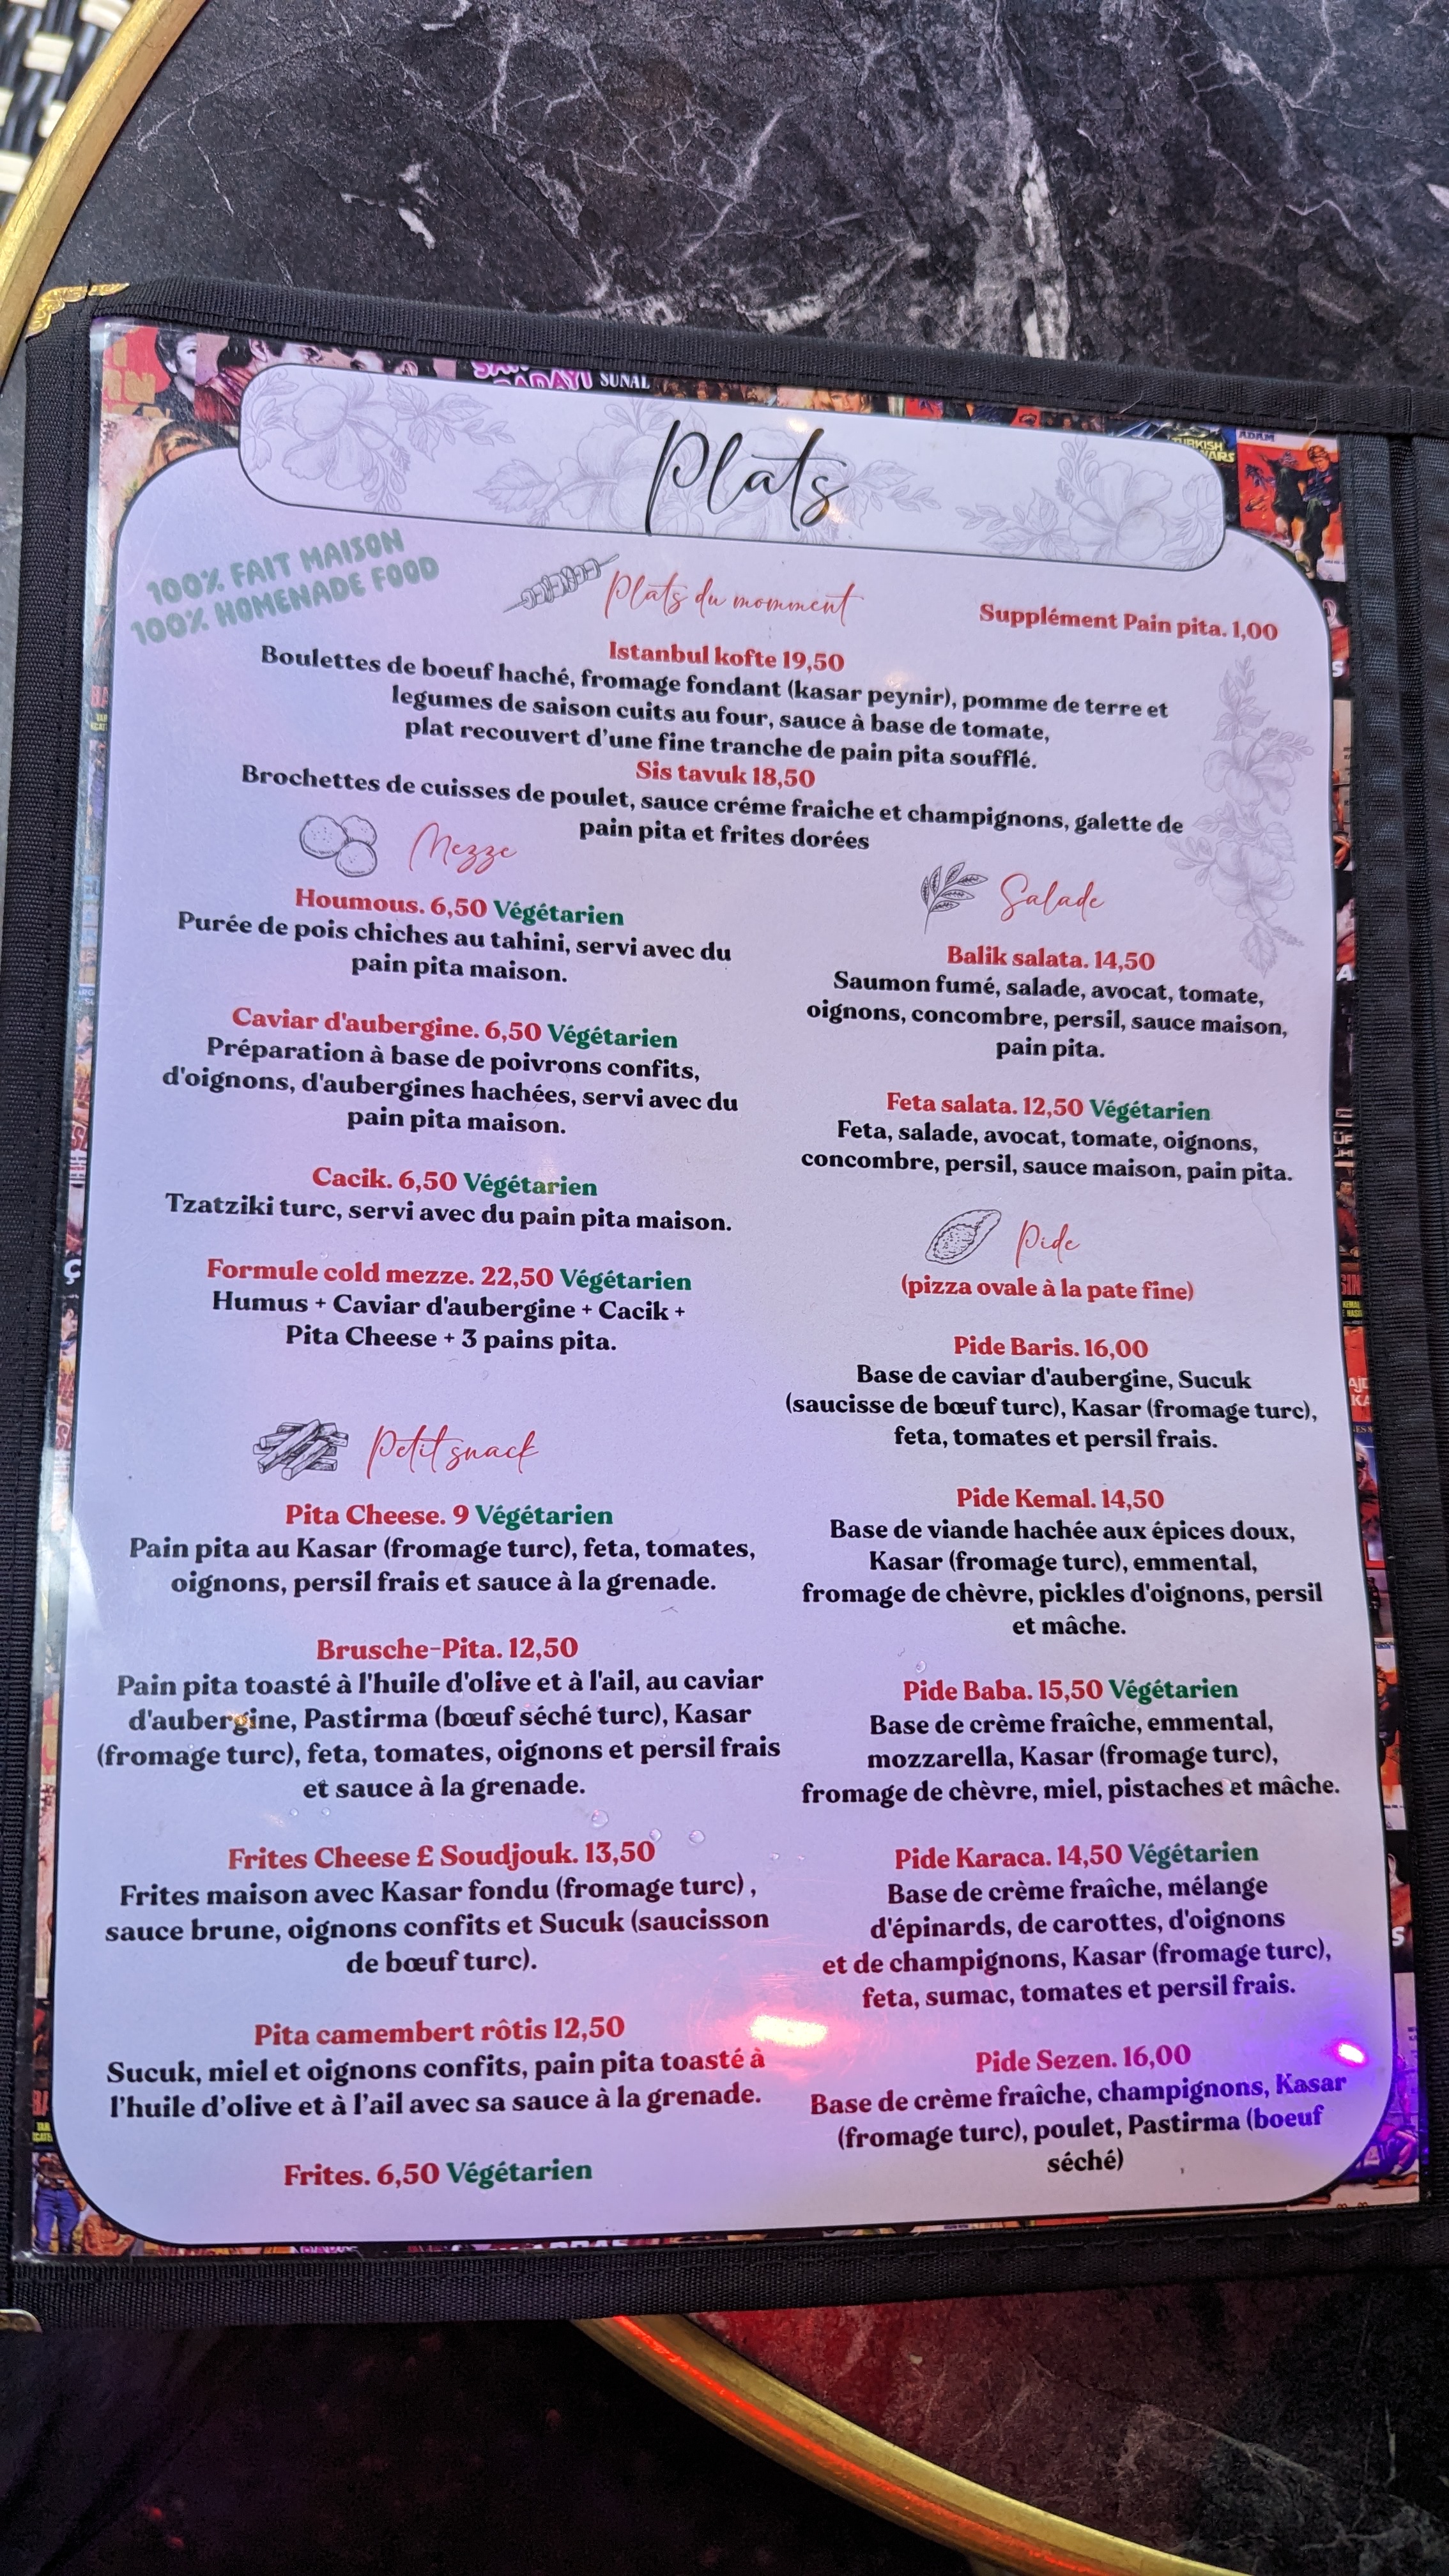 SUNAL
TURKISH
WARS
ADAM
Plats
100% FAIT MAISON
100% HOMENADE FOOD
Plats du momment
Supplément Pain pita. 1,00
Istanbul kofte 19,50
Boulettes de boeuf haché, fromage fondant (kasar peynir), pomme de terre et
legumes de saison cuits au four, sauce à base de tomate,
plat recouvert d'une fine tranche de pain pita soufflé.
Sis tavuk 18,50
Brochettes de cuisses de poulet, sauce créme fraiche et champignons, galette de
pain pita et frites dorées
Mezze
Houmous. 6,50 Végétarien
Purée de pois chiches au tahini, servi avec du
pain pita maison.
Caviar d'aubergine. 6,50 Végétarien
Préparation à base de poivrons confits,
d'oignons, d'aubergines hachées, servi avec du
pain pita maison.
Cacik. 6,50 Végétarien
Tzatziki turc, servi avec du pain pita maison.
Formule cold mezze. 22,50 Végétarien
Humus + Caviar d'aubergine + Cacik +
Pita Cheese + 3 pains pita.
Petit snack
Pita Cheese. 9 Végétarien
Pain pita au Kasar (fromage turc), feta, tomates,
oignons, persil frais et sauce à la grenade.
Brusche-Pita. 12,50
Pain pita toasté à l'huile d'olive et à l'ail, au caviar
d'aubergine, Pastirma (bœuf séché turc), Kasar
(fromage turc), feta, tomates, oignons et persil frais
et sauce à la grenade.
Frites Cheese £ Soudjouk. 13,50
Frites maison avec Kasar fondu (fromage turc) ,
sauce brune, oignons confits et Sucuk (saucisson
de bœuf turc).
Pita camembert rôtis 12,50
Sucuk, miel et oignons confits, pain pita toasté à
l'huile d'olive et à l'ail avec sa sauce à la grenade.
Frites. 6,50 Végétarien
Salade
Balik salata. 14,50
Saumon fumé, salade, avocat, tomate,
oignons, concombre, persil, sauce maison,
pain pita.
Feta salata. 12,50 Végétarien
Feta, salade, avocat, tomate, oignons,
concombre, persil, sauce maison, pain pita.
Pide
(pizza ovale à la pate fine)
Pide Baris. 16,00
Base de caviar d'aubergine, Sucuk
(saucisse de bœuf turc), Kasar (fromage turc),
feta, tomates et persil frais.
Pide Kemal. 14,50
Base de viande hachée aux épices doux,
Kasar (fromage turc), emmental,
fromage de chèvre, pickles d'oignons, persil
et mâche.
Pide Baba. 15,50 Végétarien
Base de crème fraîche, emmental,
mozzarella, Kasar (fromage turc),
fromage de chèvre, miel, pistaches et mâche.
Pide Karaca. 14,50 Végétarien
Base de crème fraîche, mélange
d'épinards, de carottes, d'oignons
et de champignons, Kasar (fromage turc),
feta, sumac, tomates et persil frais.
Pide Sezen. 16,00
Base de crème fraîche, champignons, Kasar
(fromage turc), poulet, Pastirma (boeuf
séché)